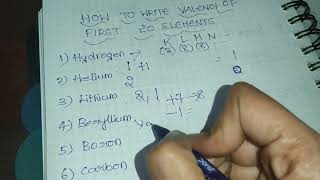 HOW TO WRITE VALENCY OF
FIRST 20 ELEMENTS
K L M N
(2) (8) (8)
1) Hydrogen → 1
1 +1
2) Helium
2 0
3) Lithium 2, 1
4) Beryllium
5) Boron
6) Carbon